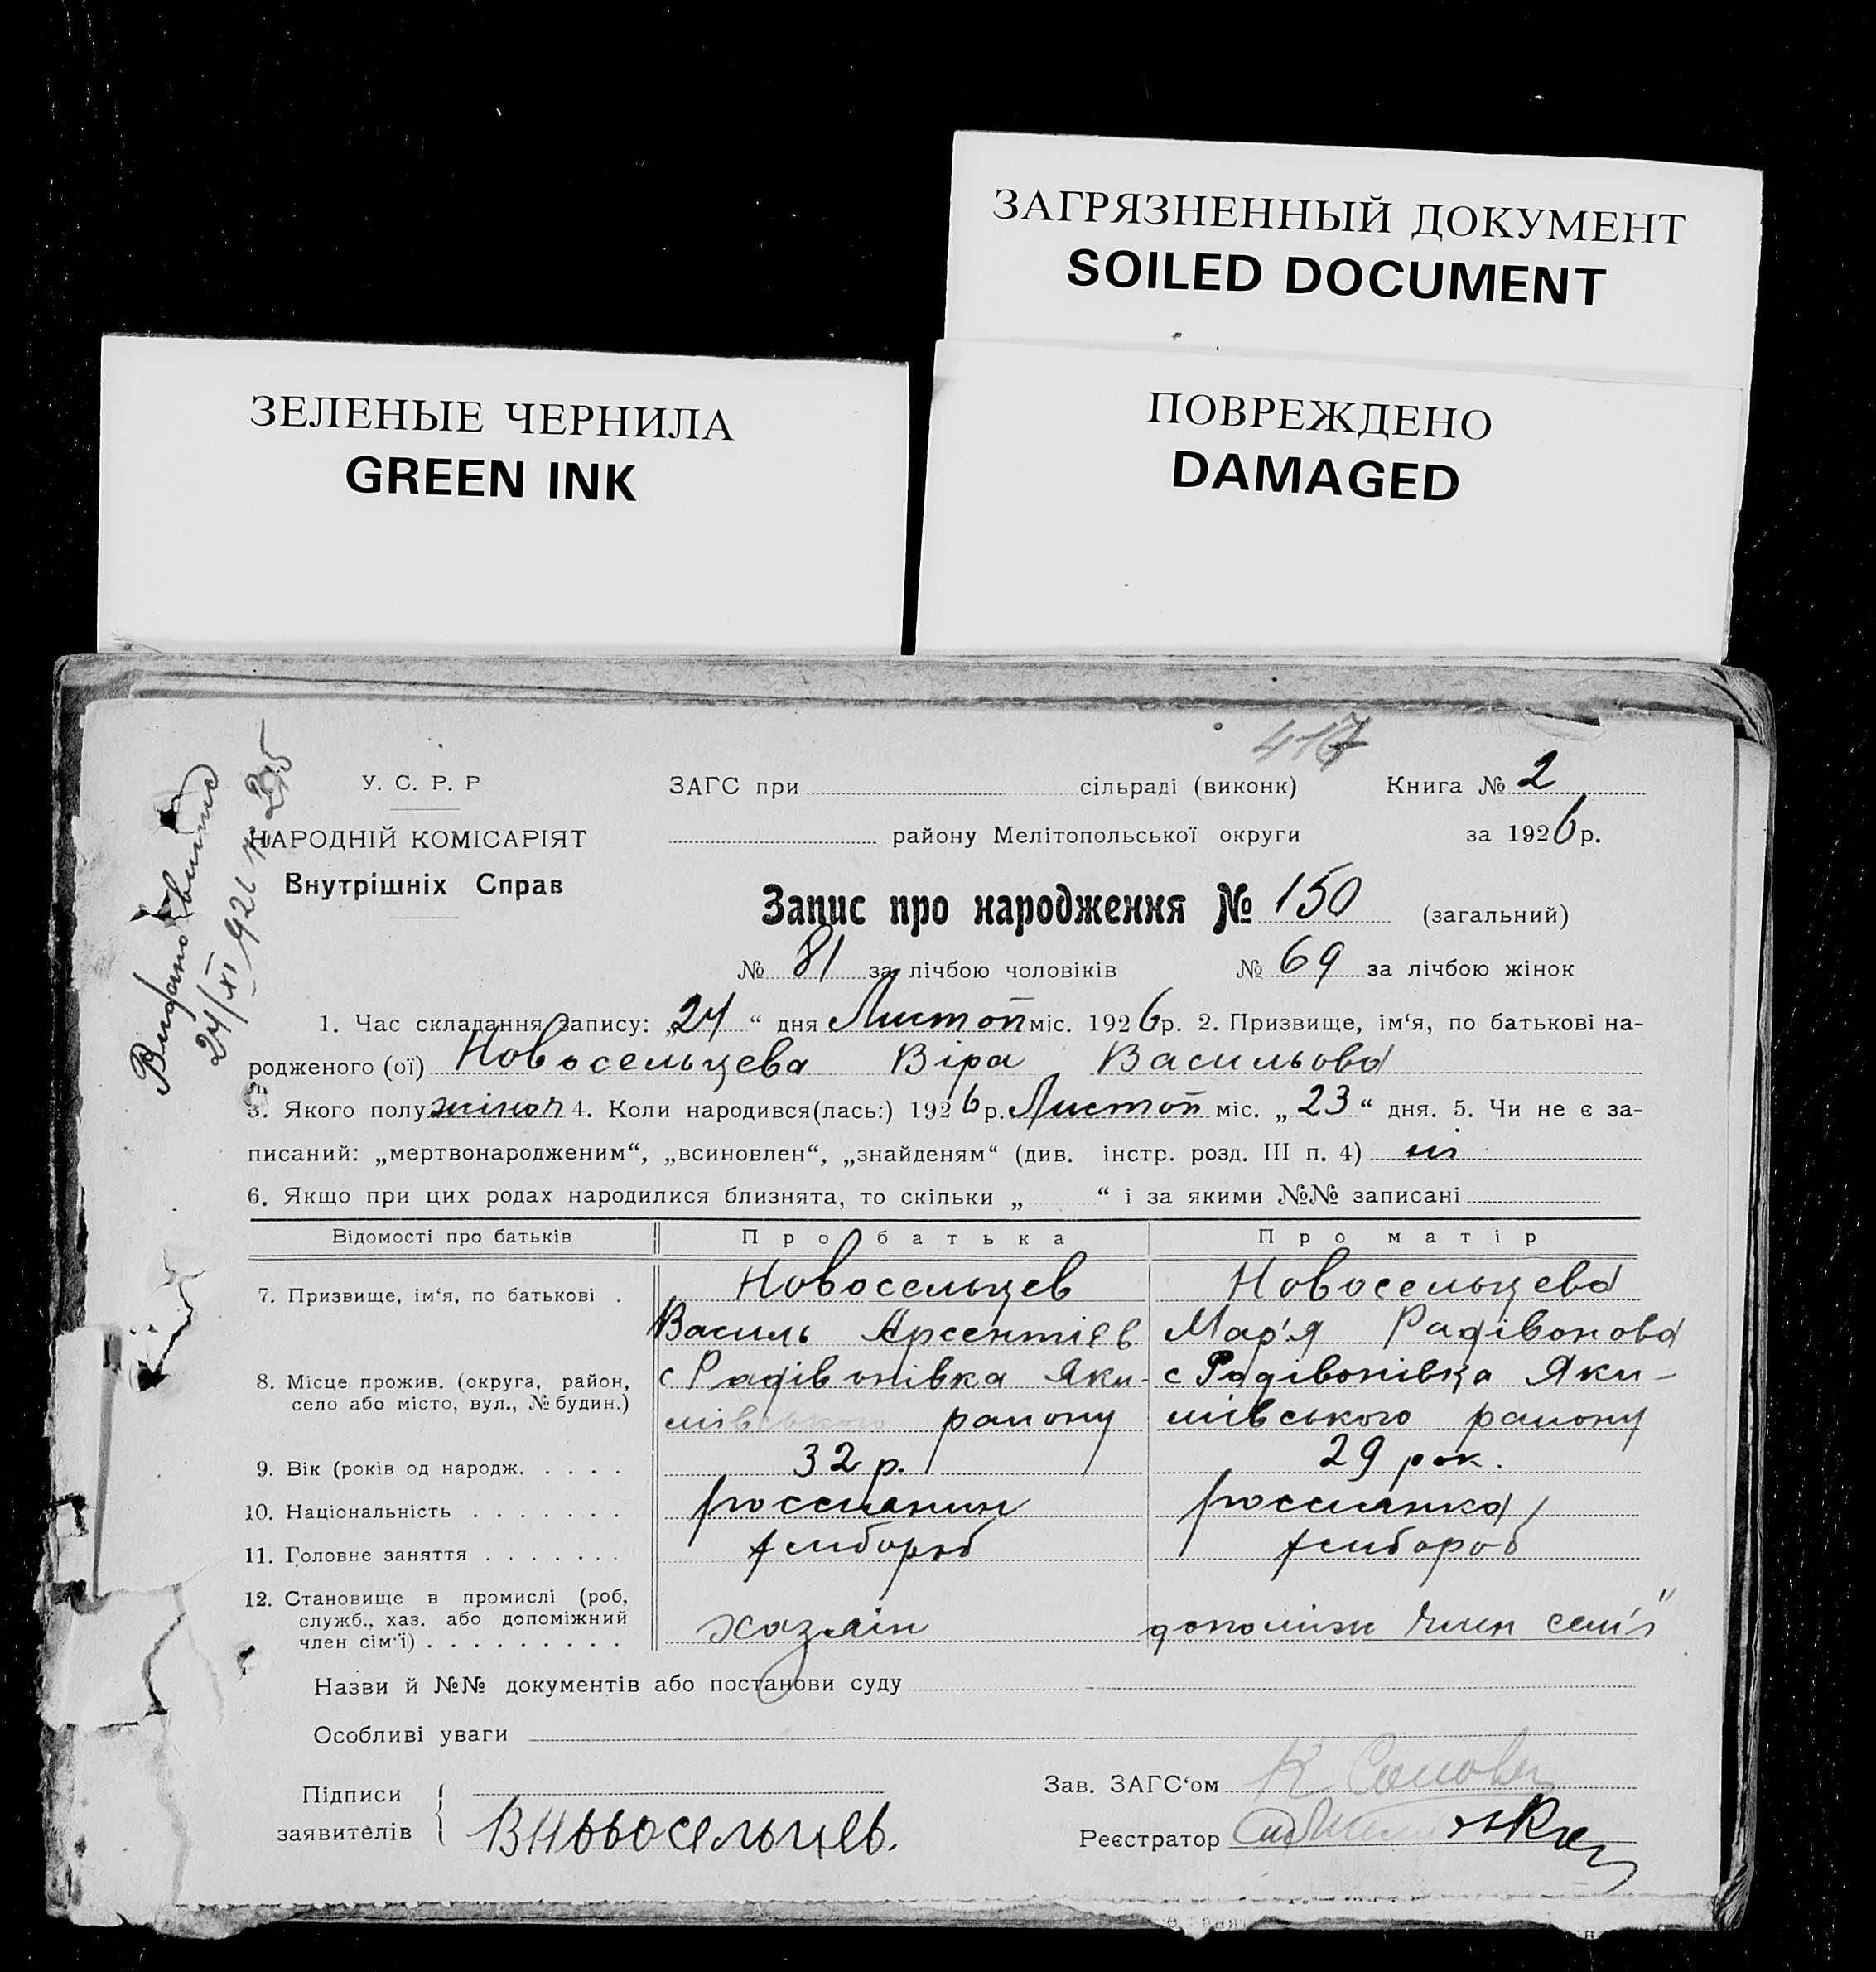 ЗАГРЯЗНЕННЫЙ ДОКУМЕНТ
SOILED DOCUMENT
ЗЕЛЕНЫЕ ЧЕРНИЛА
GREEN INK
ПОВРЕЖДЕНО
DAMAGED
417
Видано
24/XI 926 р.
У. С. Р. Р
НАРОДНІЙ КОМІСАРІЯТ
Внутрішніх Справ
ЗАГС при сільраді (виконк) Книга № 2
району Мелітопольської округи за 1926 р.
Запис про народження № 150 (загальний)
№ 81 за лічбою чоловіків № 69 за лічбою жінок
1. Час складання запису: „24“ дня Листоп міс. 1926 р. 2. Призвище, ім‘я, по батькові на-
родженого (ої) Новосельцева Віра Васильова
3. Якого полу жіноч 4. Коли народився(лась:) 1926 р. Листоп міс. „23“ дня. 5. Чи не є за-
писаний: „мертвонародженим“, „всиновлен“, „знайденям“ (див. інстр. розд. III п. 4) ні
6. Якщо при цих родах народилися близнята, то скільки „ “ і за якими №№ записані
Відомості про батьків Про батька Про матір
7. Призвище, ім‘я, по батькові . Новосельцев Новосельцева
Василь Арсентієв Мар'я Радівонова
8. Місце прожив. (округа, район, с Радівонівка Яки- с Радівонівка Яки-
село або місто, вул., № будин.) мівського району мівського району
9. Вік (років од народж. . . . . 32 р. 29 рок.
10. Національність . . . . . . . россианин россианка
11. Головне заняття . . . . . . . хлібороб хлібороб
12. Становище в промислі (роб,
служб., хаз. або допоміжний хазяїн допоміжн член семї
член сім‘ї) . . . . . . . . .
Назви й №№ документів або постанови суду
Особливі уваги
Підписи Зав. ЗАГС‘ом
заявителів В Новосельцев. Реєстратор